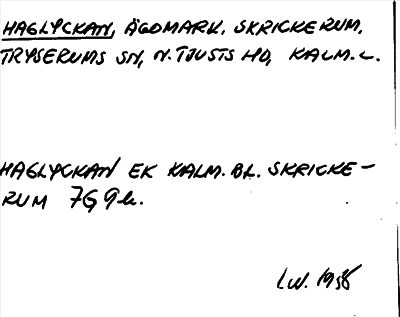 HAGLYCKAN, ÄGOMARK. SKRICKERUM,
TRYSERUMS SN, N. TJUSTS HD, KALM. L.
HAGLYCKAN EK KALM. BL. SKRICKE-
RUM 7G9h.
LW. 1958